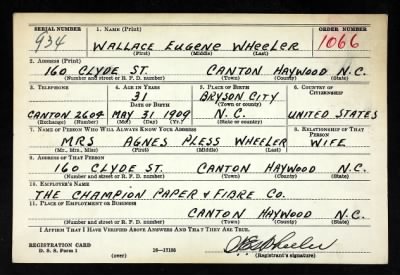 SERIAL NUMBER 1. NAME (Print) ORDER NUMBER
934 WALLACE EUGENE WHEELER 1066
(First) (Middle) (Last)
2. ADDRESS (Print)
160 CLYDE ST. CANTON HAYWOOD N.C.
(Number and street or R. F. D. number) (Town) (County) (State)
3. TELEPHONE 4. AGE IN YEARS 5. PLACE OF BIRTH 6. COUNTRY OF CITIZENSHIP
31 BRYSON CITY
DATE OF BIRTH (Town or county)
CANTON 2604 MAY 31 1909 N.C. UNITED STATES
(Exchange) (Number) (Mo.) (Day) (Yr.) (State or country)
7. NAME OF PERSON WHO WILL ALWAYS KNOW YOUR ADDRESS 8. RELATIONSHIP OF THAT PERSON
MRS AGNES PLESS WHEELER WIFE
(Mr., Mrs., Miss) (First) (Middle) (Last)
9. ADDRESS OF THAT PERSON
160 CLYDE ST. CANTON HAYWOOD N.C.
(Number and street or R. F. D. number) (Town) (County) (State)
10. EMPLOYER'S NAME
THE CHAMPION PAPER & FIBRE CO.
11. PLACE OF EMPLOYMENT OR BUSINESS
CANTON HAYWOOD N.C.
(Number and street or R. F. D. number) (Town) (County) (State)
I AFFIRM THAT I HAVE VERIFIED ABOVE ANSWERS AND THAT THEY ARE TRUE.
REGISTRATION CARD
D. S. S. Form 1 (over) 16—17105 (Registrant's signature)